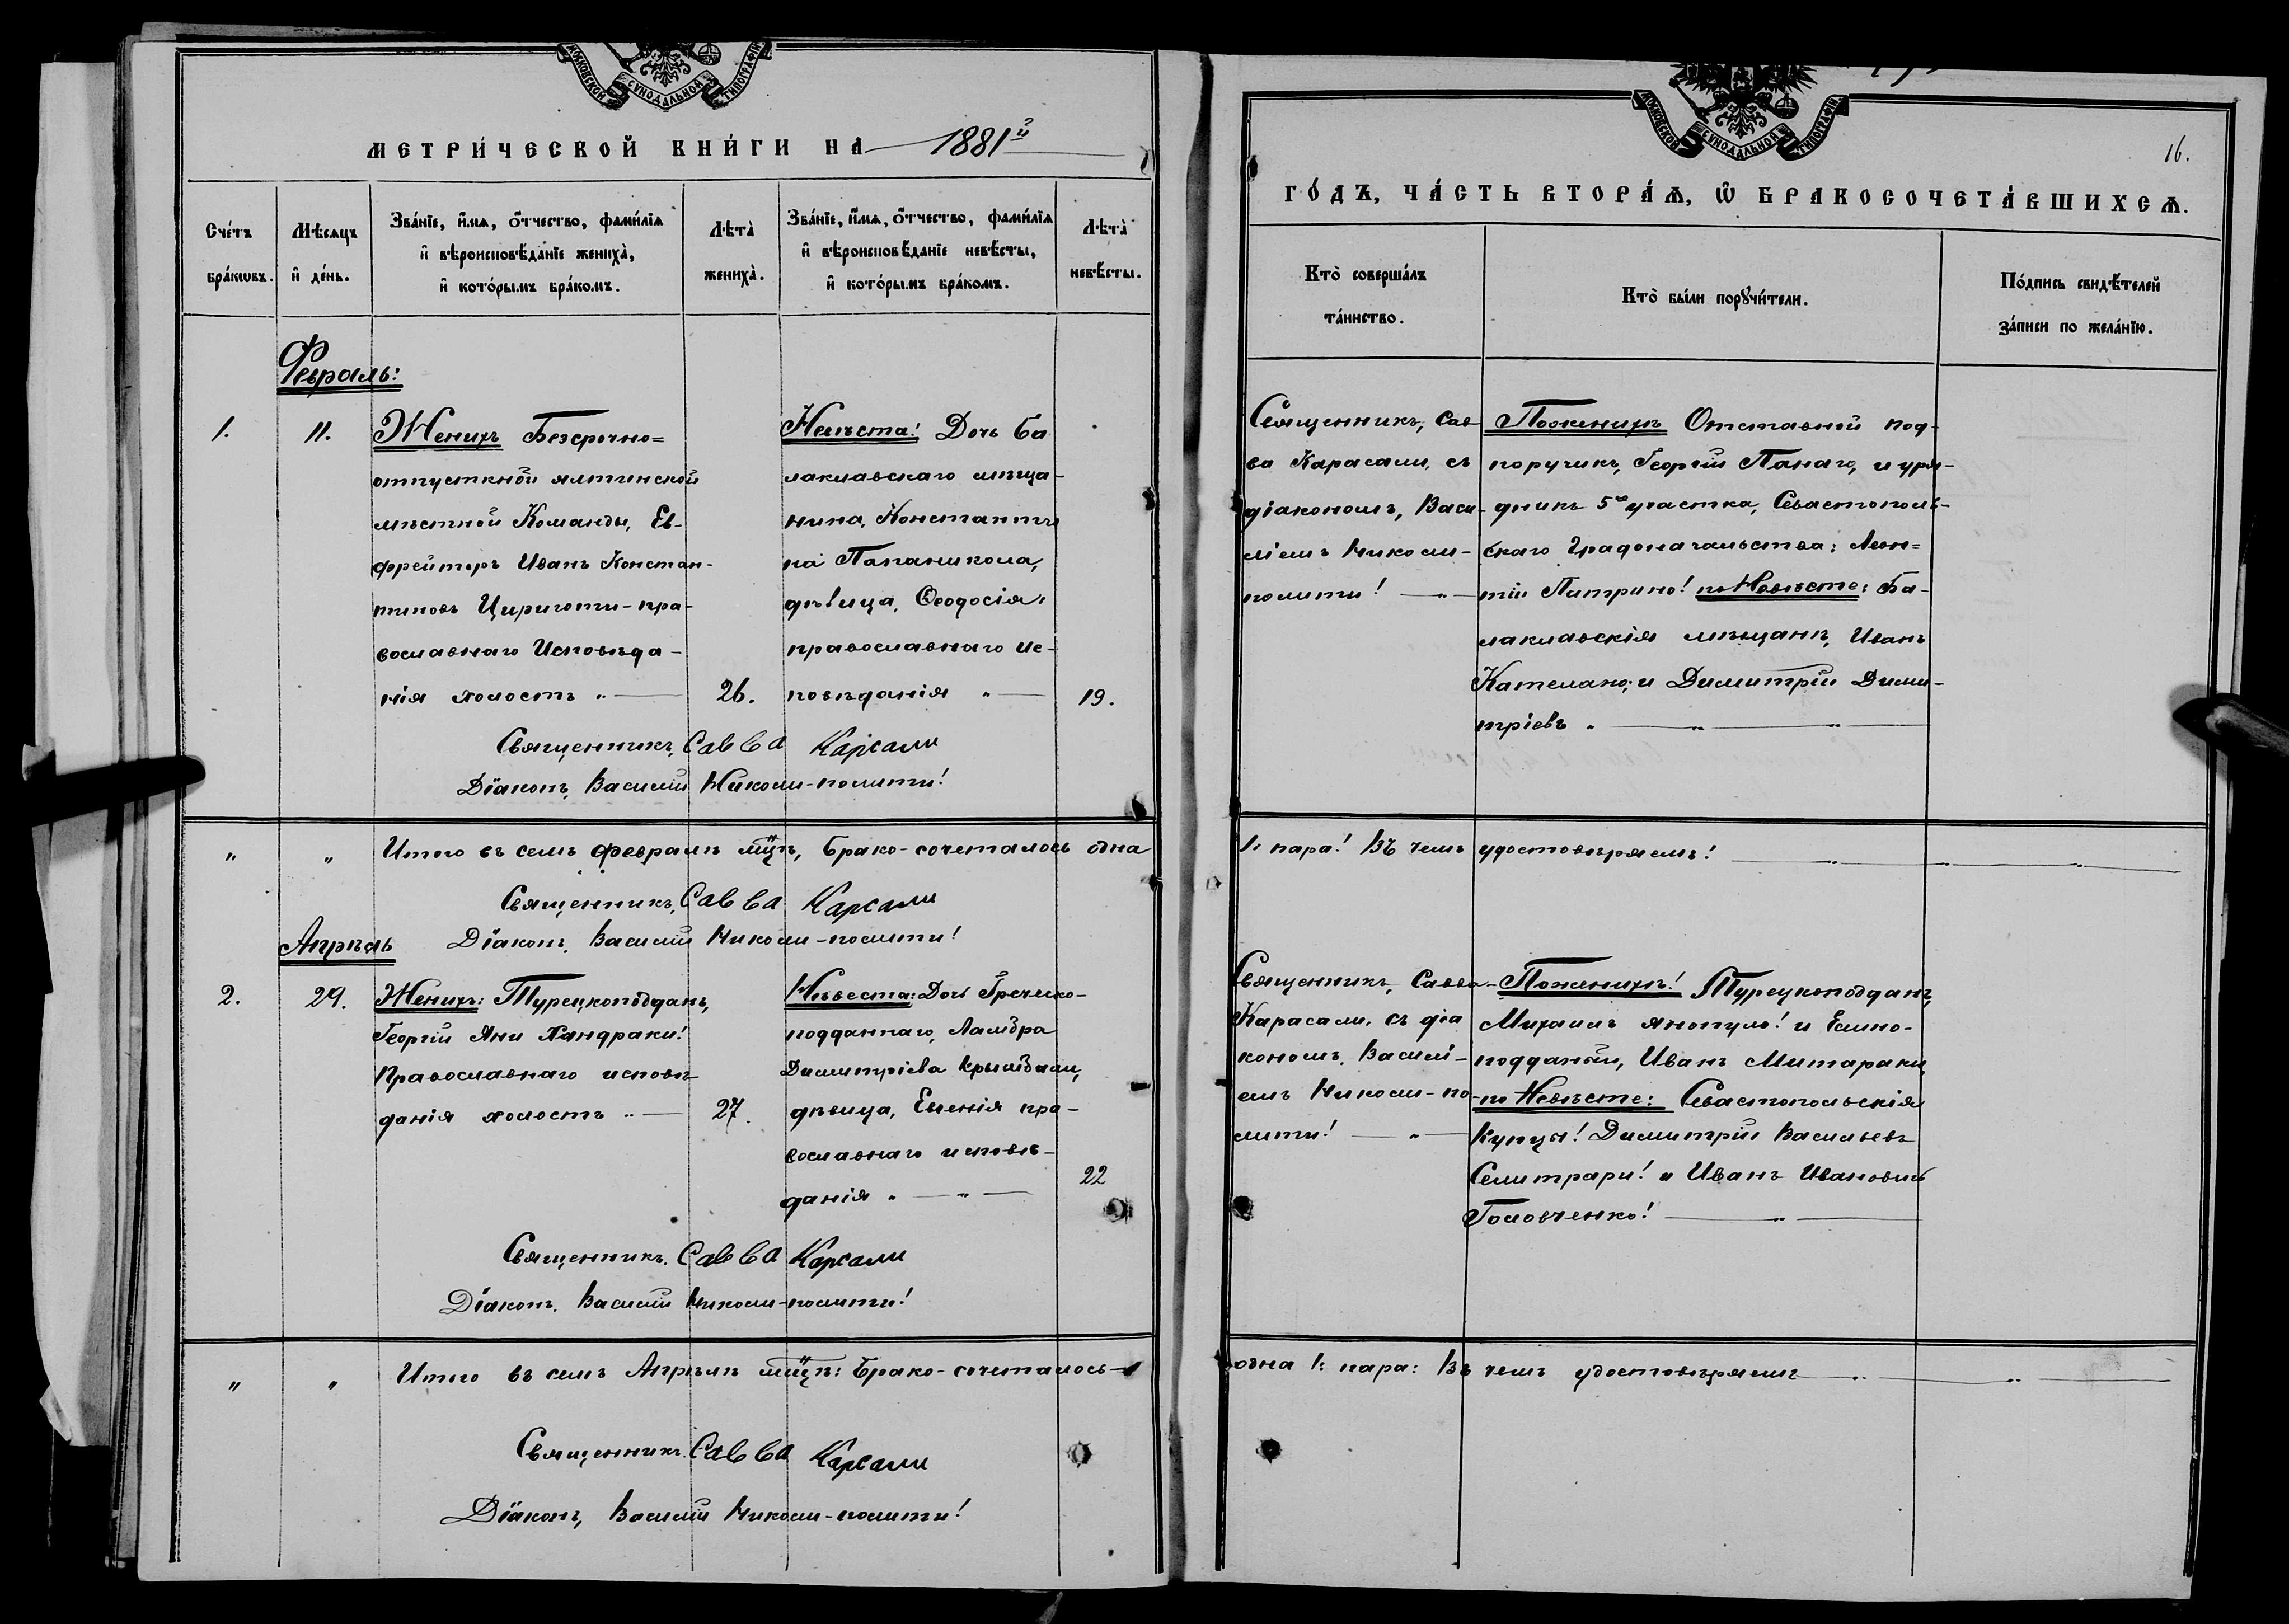 МОСКОВСКОЙ СѴНОДАЛЬНОЙ ТИПОГРАФІИ.
МЕТРИ́ЧЕСКОЙ КНИ́ГИ НА 1881й
Сче́тъ бра́кѡвъ.
Мѣ́сяцъ и҆ де́нь.
Зва́нїе, и҆́мѧ, ѻ҆́тчество, фами́лїѧ
и҆ вѣроисповѣ́данїе жениха̀,
и҆ кото́рымъ бра́комъ.
Лѣта̀ жениха̀.
Зва́нїе, и҆́мѧ, ѻ҆́тчество, фами́лїѧ
и҆ вѣроисповѣ́данїе невѣ́сты,
и҆ кото́рымъ бра́комъ.
Лѣта̀ невѣ́сты.
Февраль:
1.
11.
Женихъ Безсрочно=
отпускной ялтинской
мѣстной Команды, Ев-
фрейторъ Иванъ Констан-
тиновъ Цириготи-пра-
вославнаго Исповѣда-
нія холостъ „ —
26.
Невѣста: Дочь Ба
лаклавскаго мѣща-
нина, Константи
на Папаникола,
дѣвица, Ѳеодосія:
православнаго ис-
повѣданія „ —
19.
Священникъ, Савва Карсали
Діаконъ, Василій Николи-полити!
„ „ Итого въ семъ февралѣ мцѣ, Брако-сочеталось одна
Священникъ, Савва Карсали
Діаконъ, Василій Николи-полити!
Апрѣль
2.
29.
Женихъ: Турецкоподданъ,
Георгій Яни Хандраки!
Православнаго исповѣ
данія холостъ „ —
27.
Нѣвеста: Дочь Греческо-
подданнаго, Ламбра
Димитріева
дѣвица, Евгенія пра-
вославнаго исповѣ-
данія „ — „ —
22
Священникъ. Савва Карсали
Діаконъ. Василій Николи-полити!
„ „ Итого въ семъ Апрѣлѣ мцѣ: Брако-сочеталось
Священникъ. Савва Карсали
Діаконъ, Василій Николи-полити!
МОСКОВСКОЙ СѴНОДАЛЬНОЙ ТИПОГРАФІИ.
16.
ГО́ДЪ, ЧА́СТЬ ВТОРА́Ѧ, Ѡ҆ БРАКОСОЧЕТА́ВШИХСѦ.
Кто̀ соверша́лъ
та́инство.
Кто̀ бы́ли порꙋчи́тели.
По́дпись свидѣ́телей
за́писи по жела́нїю.
Священникъ, Сав
ва Карасали, съ
діакономъ, Васи-
ліемъ Николи-
полити! — „ —
Поженихѣ Отставной под-
поручикъ, Георгій Панаго, и уря-
дникъ 5го участка, Севастополь-
скаго Градоначальства: Леон=
тій Патрино! по Невѣсте: Ба-
лаклавскія мѣщанѣ, Иванъ
Кателано; и Димитрій Дими-
тріевъ „ — „ — „ —
1: пара! Въ чемъ удостовѣряемъ! — „ — „ — „ —
Священникъ, Савва
Карасали, съ діа
кономъ, Василі-
емъ Николи-по-
лити! — „ —
Поженихѣ! Турецкоподданъ,
Михаилъ Янопуло! и Еллино-
подданный, Иванъ Митараки,
по Невѣсте: Севастопольскія
Купцы! Димитрій Васильевъ
Селитрари! и Иванъ Ивановичъ
Головченко! — „ —
одна 1: пара: Въ чемъ удостовѣряемъ — „ — „ —